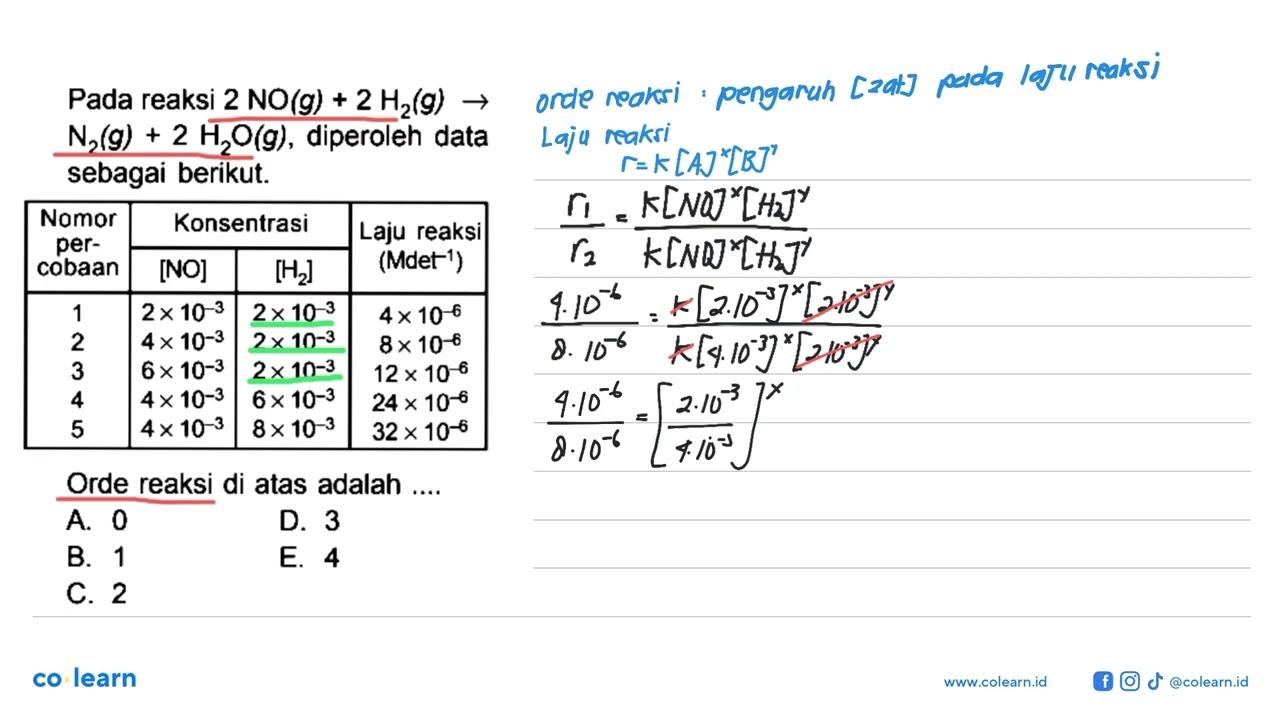 Pada reaksi 2 NO(g) + 2 H₂(g) →
N₂(g) + 2 H₂O(g), diperoleh data
sebagai berikut.
Nomor per-cobaan | Konsentrasi | Laju reaksi (Mdet⁻¹)
[NO] | [H₂]
1 | 2 × 10⁻³ | 2 × 10⁻³ | 4 × 10⁻⁶
2 | 4 × 10⁻³ | 2 × 10⁻³ | 8 × 10⁻⁶
3 | 6 × 10⁻³ | 2 × 10⁻³ | 12 × 10⁻⁶
4 | 4 × 10⁻³ | 6 × 10⁻³ | 24 × 10⁻⁶
5 | 4 × 10⁻³ | 8 × 10⁻³ | 32 × 10⁻⁶
Orde reaksi di atas adalah ....
A. 0 D. 3
B. 1 E. 4
C. 2
orde reaksi : pengaruh [zat] pada laju reaksi
Laju reaksi
r = k[A]ˣ[B]ʸ
r₁/r₂ = k[NO]ˣ[H₂]ʸ / k[NO]ˣ[H₂]ʸ
4.10⁻⁶ / 8.10⁻⁶ = k[2.10⁻³]ˣ[2.10⁻³]ʸ / k[4.10⁻³]ˣ[2.10⁻³]ʸ
4.10⁻⁶ / 8.10⁻⁶ = [2.10⁻³ / 4.10⁻³]ˣ
co learn
www.colearn.id
@colearn.id